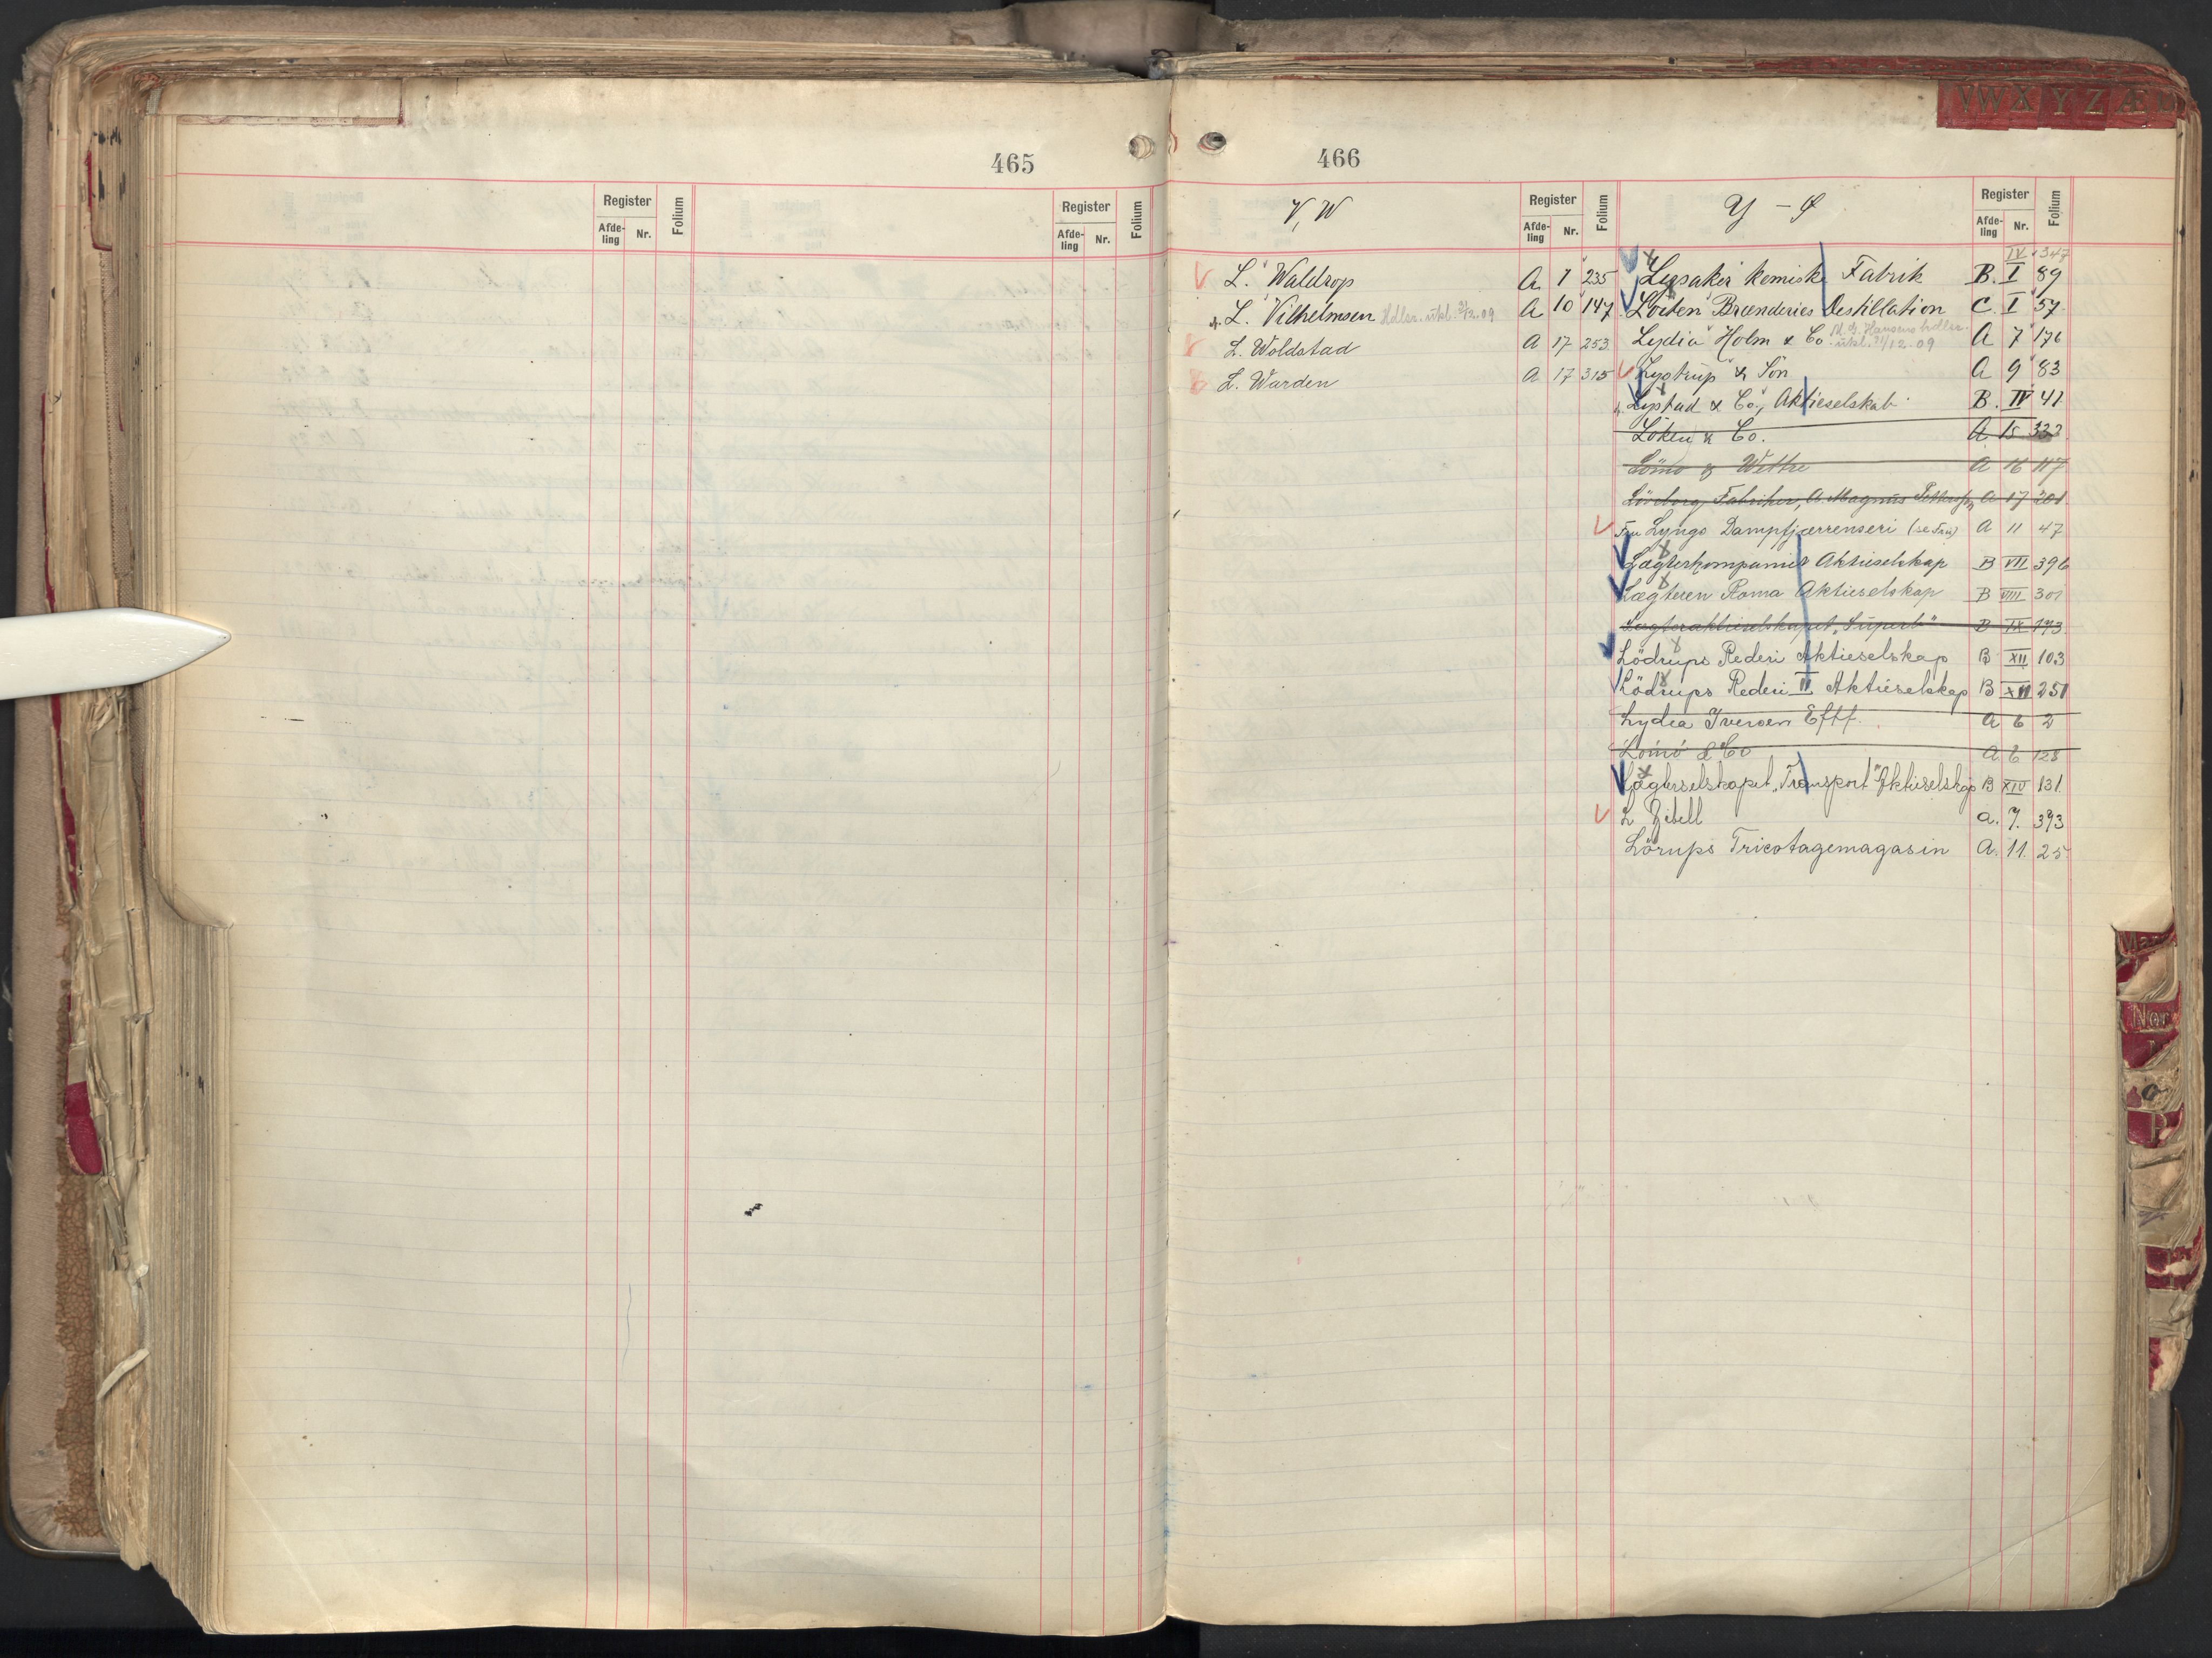 VWXYZÆ
465
Register
Afde-
ling
Nr.
Folium
Register
Afde-
ling
Nr.
Folium
466
V, W
Register
Afde-
ling
Nr.
Folium
L. Waldrop A 1 235
L. Vilhelmsen Hdlsr. utkl. 31/12.09 A 10 147
L. Woldstad A 17 253
L. Warden A 17 315
Y - Ø
Register
Afde-
ling
Nr.
Folium
IV 347
Lysaker kemiske Fabrik B. I 89
Loiten Brænderies Destillation C. I 57
Lydia Holm & Co. Hansens hdlsr. utkl. 31/12-09 A 7 176
Lystrup & Søn A 9 83
Lystad & Co., Aktieselskab B. IV 41
Löken & Co. A 15 333
Lömo & Wettre A 16 117
Fabriker, A. Magnus A 17 201
Fru Lyngs Dampfjærrenseri (se Fru) A 11 47
Lægterkompaniet Aktieselskap B VII 396
Lægteren Roma Aktieselskap B VIII 301
Lægteraktieselskapet "Superb" B IX 193
Lödrups Rederi Aktieselskap B XII 103
Lödrups Rederi II Aktieselskap B XII 251
Lydia Iversen Eftf. A 6 2
Lömö & Co A 6 128
Lægterselskapet "Transport" Aktieselskap B XIV 131
L Zibell a. 7. 393
Lörups Tricotagemagasin A. 11. 25
Nor